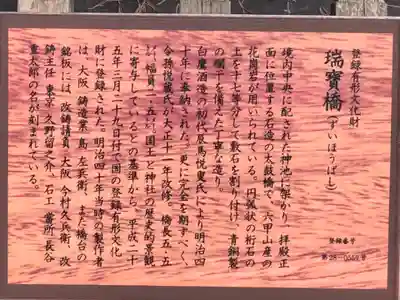 登録有形文化財
瑞寶橋(ずいほうばし)
登録番号
第28-0559号
境内中央に配された神池に架かり、拝殿正
面に位置する石造の太鼓橋で、六甲山産の
花崗岩が用いられている。円弧状の桁石の
上を十七等分して敷石を割り付け、青銅製
の欄干を備えた丁寧な造り。
白鷹酒造の初代辰馬悦叟氏により明治四
十年に奉納された。更に完全を期すべく、
令孫悦叟氏が大正十一年改修。橋長五・五
㍍、幅員三・五㍍。国土と神社の歴史的景観
に寄与しているとの基準から、平成二十
五年三月二十九日付で国の登録有形文化
財に登録された。明治四十年当時の製作者
は、大阪 鋳造業 島 左兵衛、また橋台の
銘板には、改鋳請負 大阪 今村久兵衛、改
鋳主任 東京 久野留之介、石工 當所 長谷
重太郎の名が刻まれている。